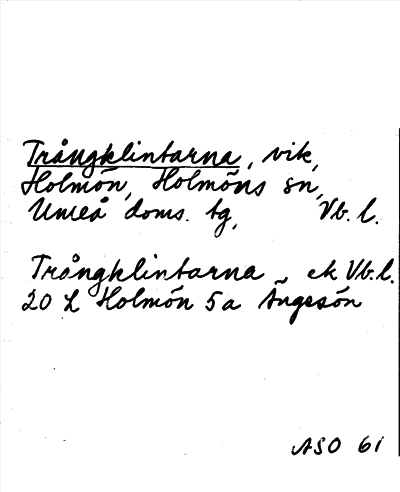 Trångklintarna, vik,
Holmön, Holmöns sn,
Umeå doms. tg, Vb. l.
Trångklintarna – ek Vb. l.
20 L Holmön 5a Ängesön
ASO 61